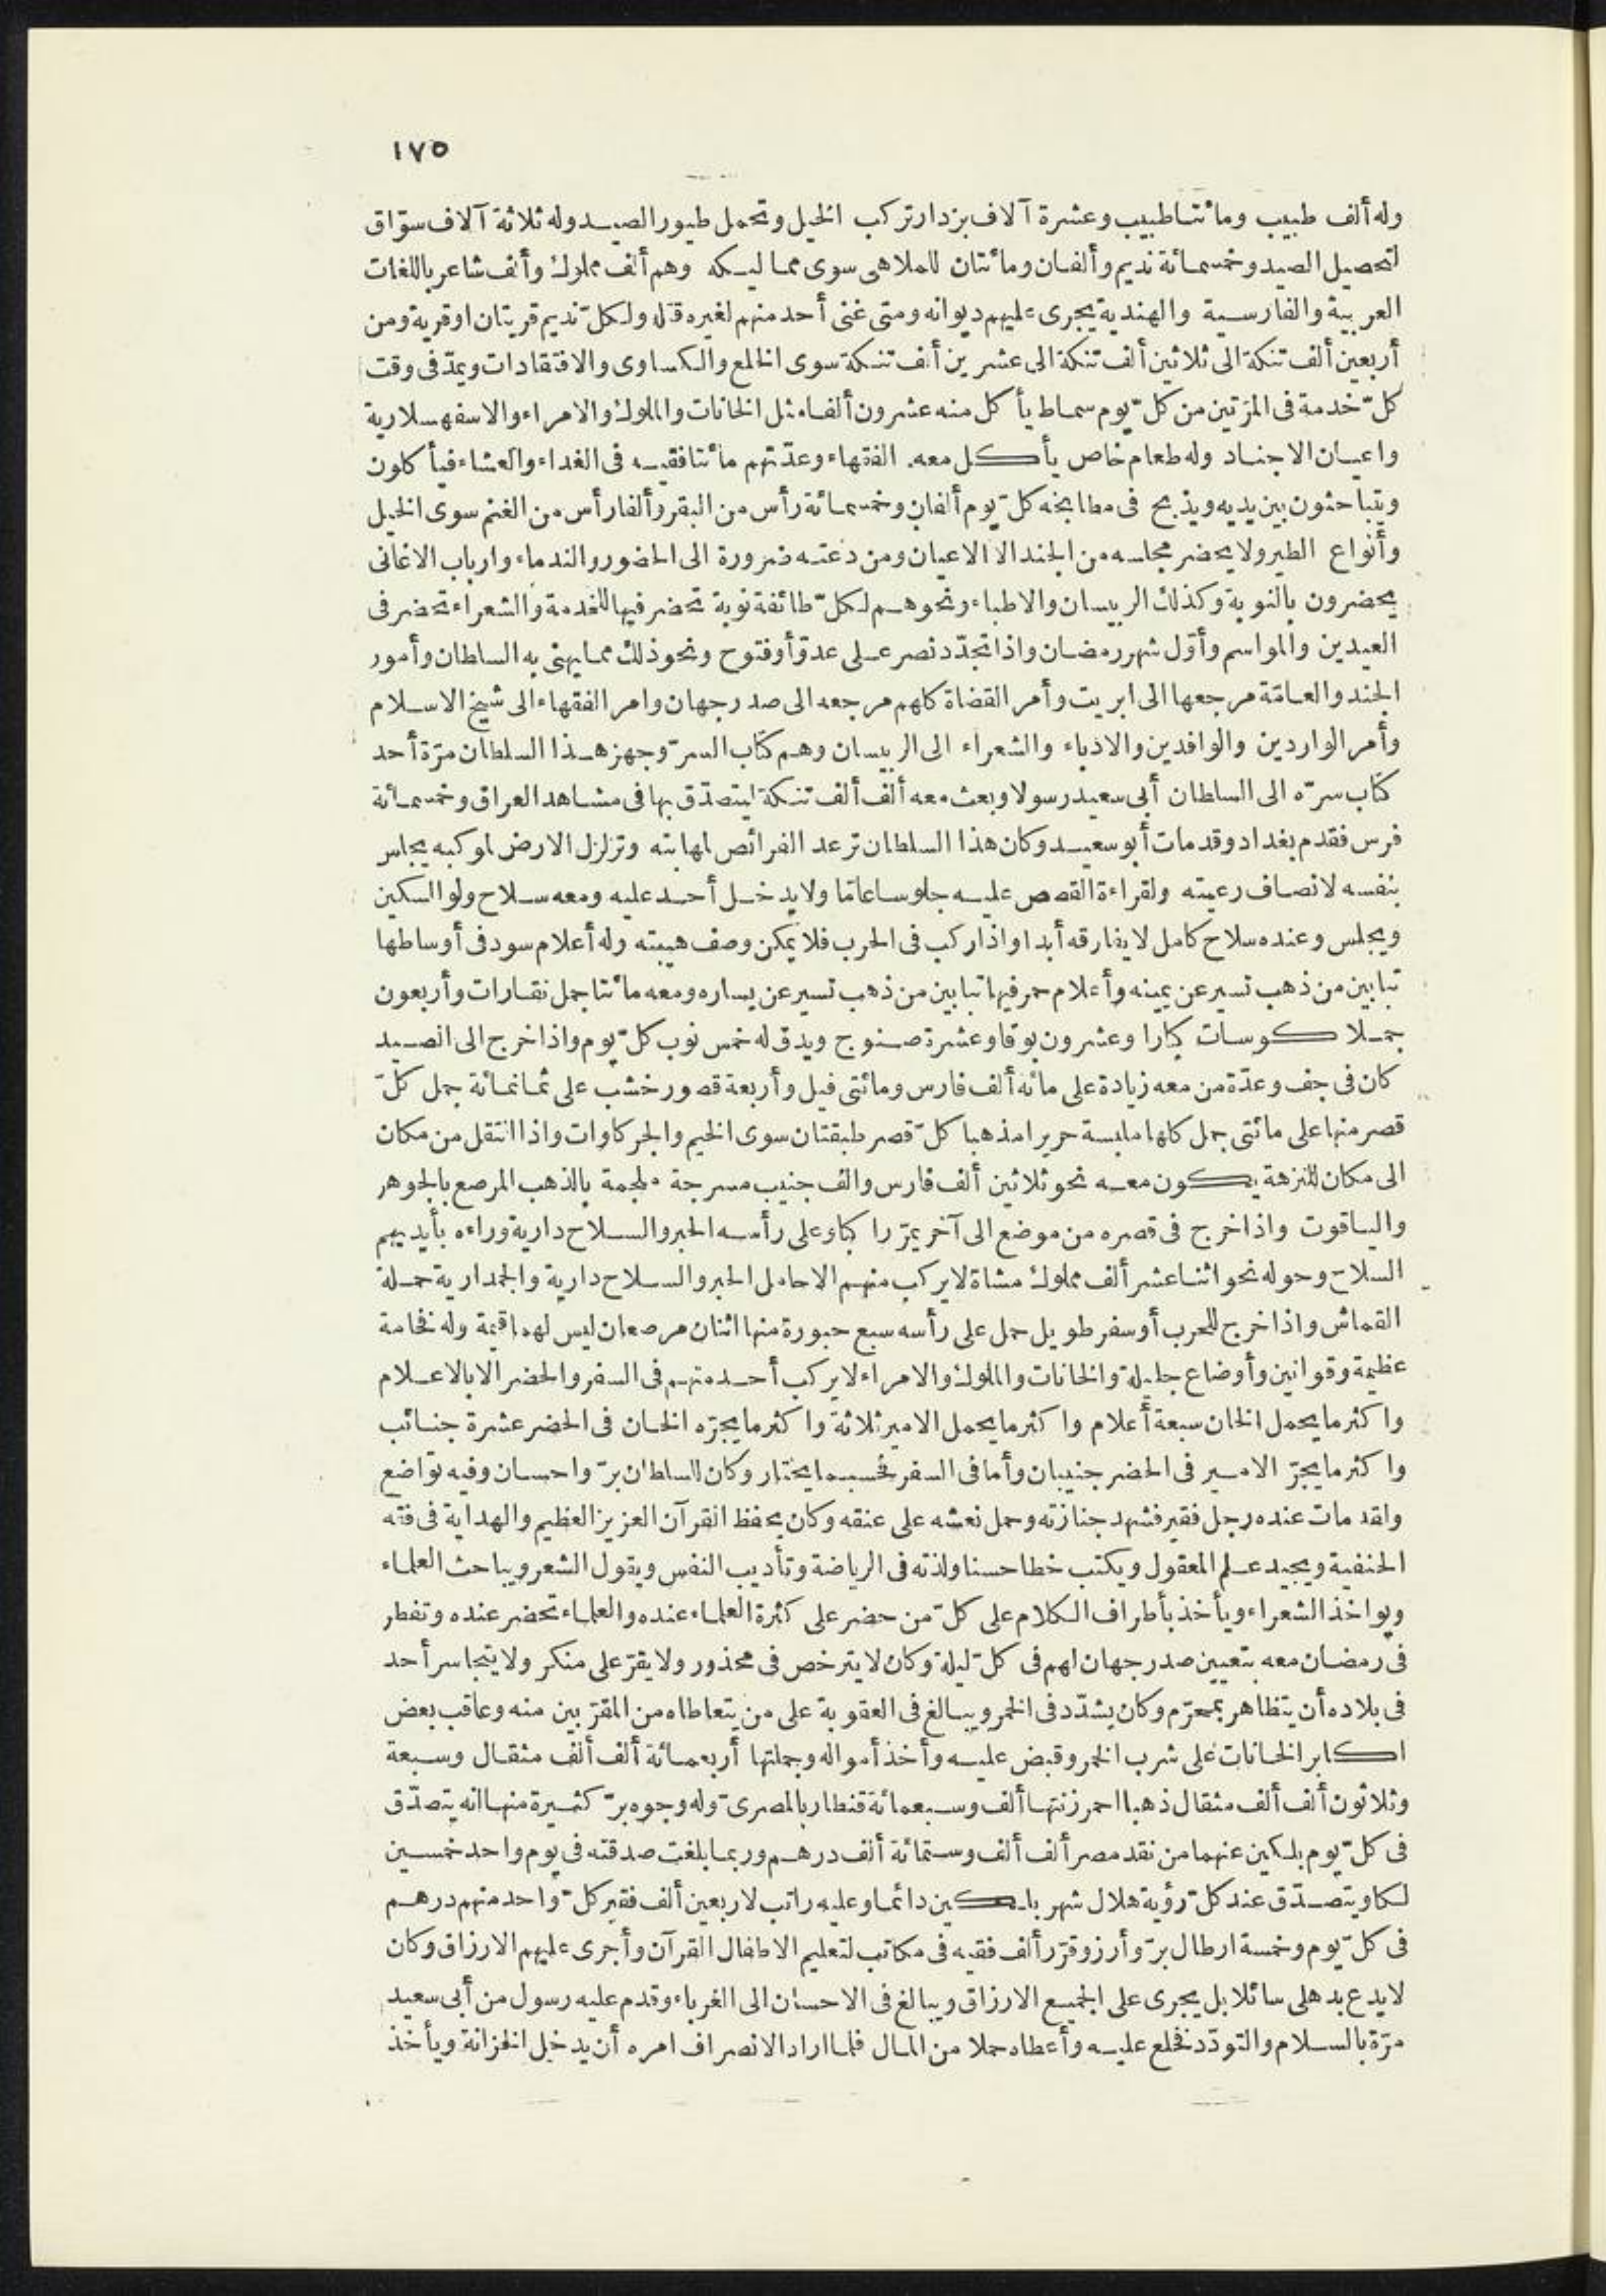 ١٧٥
وله ألف طبيب ومائتا طبيب وعشرة آلاف بزدار تركب الخيل وتحمل طيور الصيد وله ثلاثة آلاف سوّاق
لتحصيل الصيد وخمسمائة نديم وألفان ومائتان للملاهى سوى مماليكه وهم ألف مملوك وألف شاعر باللغات
العربية والفارسية والهندية يجرى عليهم ديوانه ومتى غنى أحد منهم لغيره قتله ولكلّ نديم قريتان اوقرية ومن
أربعين ألف تنكة الى ثلاثين ألف تنكة الى عشرين ألف تنكة سوى الخلع والكساوى والافتقادات ويمدّ فى وقت
كلّ خدمة فى المرّتين من كلّ يوم سماط يأكل منه عشرون ألفا مثل الخانات والملوك والامراء والاسفهسلارية
واعيان الاجناد وله طعام خاص يأكل معه الفقهاء وعدّتهم مائتا فقيه فى الغداء والعشاء فيأكلون
ويتباحثون بين يديه ويذبح فى مطابخه كلّ يوم ألفان وخمسمائة رأس من البقر وألفا رأس من الغنم سوى الخيل
وأنواع الطير ولا يحضر مجلسه من الجند الا الاعيان ومن دعته ضرورة الى الحضور والندماء وارباب الاغانى
يحضرون بالنوبة وكذلك الربيسان والاطباء ونحوهم لكلّ طائفة نوبة تحضر فيها للخدمة والشعراء تحضر فى
العيدين والمواسم وأوّل شهر رمضان واذا تجدّد نصر على عدوّ أوفتوح ونحو ذلك مما يهنى به السلطان وأمور
الجند والعامّة مرجعها الى ابريت وأمر القضاة كلهم مرجعه الى صدر جهان وامر الفقهاء الى شيخ الاسلام
وأمر الواردين والوافدين والادباء والشعراء الى الربيسان وهم كتاب السرّ وجهز هذا السلطان مرّة أحد
كتاب سرّه الى السلطان أبى سعيد رسولا وبعث معه ألف ألف تنكة ليتصدّق بها فى مشاهد العراق وخمسمائة
فرس فقدم بغداد وقد مات أبو سعيد وكان هذا السلطان ترعد الفرائص لمهابته وتزلزل الارض لموكبه يجلس
بنفسه لانصاف رعيته ولقراءة القصص عليه جلوسا عامّا ولا يدخل أحد عليه ومعه سلاح ولو السكين
ويجلس وعنده سلاح كامل لا يفارقه أبدا واذا ركب فى الحرب فلا يمكن وصف هيبته وله أعلام سود فى أوساطها
تبابين من ذهب تسير عن يمينه وأعلام حمر فيها تبابين من ذهب تسير عن يساره ومعه مائتا جمل نقارات وأربعون
جملا كوسات كبارا وعشرون بوقا وعشرة صنوج ويدق له خمس نوب كلّ يوم واذا خرج الى الصيد
كان فى جف وعدّة من معه زيادة على مائة ألف فارس ومائتى فيل وأربعة قصور خشب على ثمانمائة جمل كلّ
قصر منها على مائتى جمل كلها ملبسة حريرا مذهبا كلّ قصر طبقتان سوى الخيم والجركاوات واذا انتقل من مكان
الى مكان للنزهة يكون معه نحو ثلاثين ألف فارس والف جنيب مسرجة ملجمة بالذهب المرصع بالجوهر
والياقوت واذا خرج فى قصره من موضع الى آخر يمرّ راكبا وعلى رأسه الحبر والسلاح دارية وراءه بأيديهم
السلاح وحوله نحو اثنا عشر ألف مملوك مشاة لا يركب منهم الا حامل الحبر والسلاح دارية والجمدارية حملة
القماش واذا خرج للحرب أوسفر طويل حمل على رأسه سبع حبورة منها اثنان مرصعان ليس لهما قيمة وله فخامة
عظيمة وقوانين وأوضاع جليلة والخانات والملوك والامراء لا يركب أحد منهم فى السفر والحضر الا بالاعلام
واكثر ما يحمل الخان سبعة أعلام واكثر ما يحمل الامير ثلاثة واكثر ما يجرّه الخان فى الحضر عشرة جنائب
واكثر ما يجرّ الامير فى الحضر جنيبان وأما فى السفر فحسبما يختار وكان للسلطان برّ واحسان وفيه تواضع
ولقد مات عنده رجل فقير فشهد جنازته وحمل نعشه على عنقه وكان يحفظ القرآن العزيز العظيم والهداية فى فقه
الحنفية ويجيد علم المعقول ويكتب خطا حسنا ولذته فى الرياضة وتأديب النفس ويقول الشعر ويباحث العلماء
ويواخذ الشعراء ويأخذ بأطراف الكلام على كلّ من حضر على كثرة العلماء عنده والعلماء تحضر عنده وتفطر
فى رمضان معه بتعيين صدر جهان لهم فى كلّ ليلة وكان لا يترخص فى محذور ولا يقرّ على منكر ولا يتجاسر أحد
فى بلاده أن يتظاهر بمحرّم وكان يشدّد فى الخمر ويبالغ فى العقوبة على من يتعاطاه من المقرّبين منه وعاقب بعض
اكابر الخانات على شرب الخمر وقبض عليه وأخذ أمواله وجملتها أربعمائة ألف ألف مثقال وسبعة
وثلاثون ألف ألف مثقال ذهبا احمر زنتها ألف وسبعمائة قنطار بالمصرىّ وله وجوه برّ كثيرة منها انه يتصدّق
فى كلّ يوم بلكين عنهما من نقد مصر ألف ألف وستمائة ألف درهم وربما بلغت صدقته فى يوم واحد خمسين
لكا ويتصدّق عند كلّ رؤية هلال شهر بلكين دائما وعليه راتب لاربعين ألف فقير كلّ واحد منهم درهم
فى كلّ يوم وخمسة ارطال برّ وأرز وقرّر ألف فقيه فى مكاتب لتعليم الاطفال القرآن وأجرى عليهم الارزاق وكان
لا يدع بدهلى سائلا بل يجرى على الجميع الارزاق ويبالغ فى الاحسان الى الغرباء وقدم عليه رسول من أبى سعيد
مرّة بالسلام والتودّد فخلع عليه وأعطاه حملا من المال فلما اراد الانصراف امره أن يدخل الخزانة ويأخذ